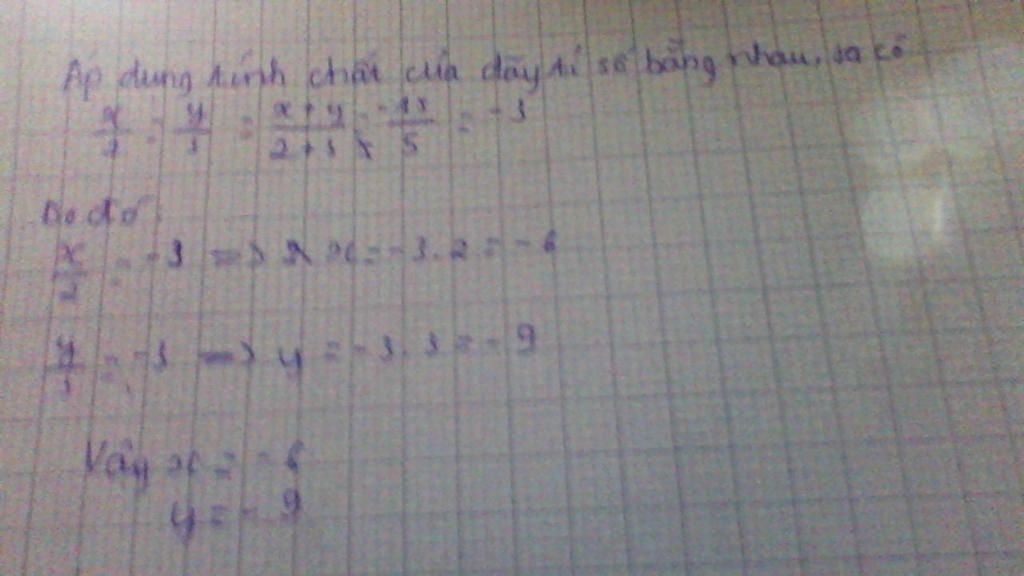 Áp dụng tính chất của dãy tỉ số bằng nhau, ta có
x/2 = y/3 = x+y/2+3 = -15/5 = -3
Do đó:
x/2 = -3 => x = -3.2 = -6
y/3 = -3 => y = -3.3 = -9
Vậy x = -6
y = -9